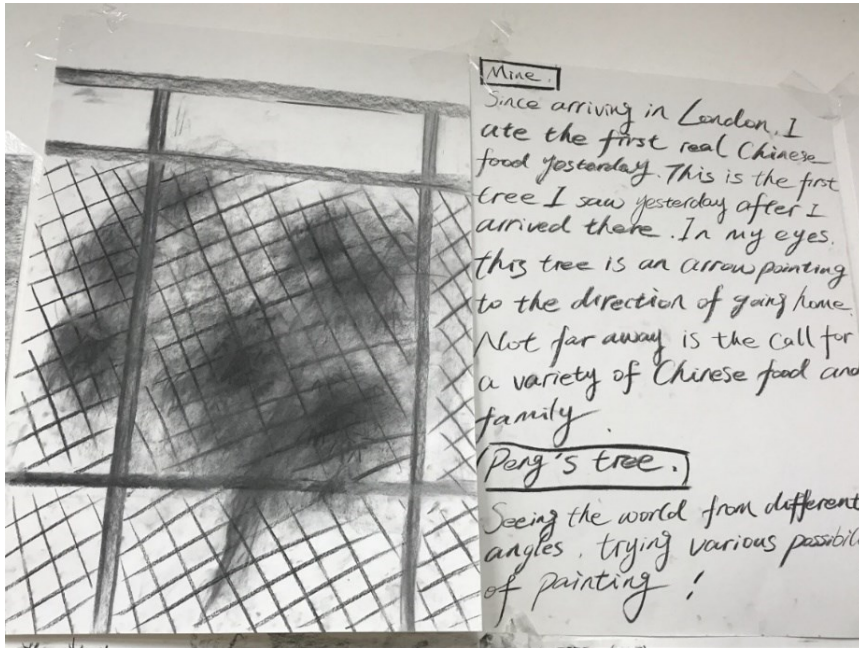 Mine.
Since arriving in London, I
ate the first real Chinese
food yesterday. This is the first
tree I saw yesterday after I
arrived there. In my eyes,
this tree is an arrow pointing
to the direction of going home.
Not far away is the call for
a variety of Chinese food and
family.
Peng's tree.
Seeing the world from different
angles, trying various possibil
of painting!